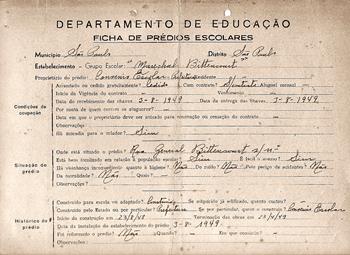 DEPARTAMENTO DE EDUCAÇÃO
FICHA DE PRÉDIOS ESCOLARES
Município São Paulo Distrito São Paulo
Estabelecimento - Grupo Escolar "Marechal Bittencourt"
Proprietário do prédio? Convenio Escolar Residente
Condições de ocupação
Arrendado ou cedido gratuitamente? Cedido Com contrato? Aluguel mensal
Início da Vigência do contrato
Data do recebimento das chaves 3-8-1949 Data da entrega das chaves 3-8-1949
Data em que o proprietário deve ser avisado para renovação ou cessação do contrato
Observações:
Há moradia para o zelador? Sim
Situação do prédio
Onde está situado o prédio? Rua General Bittencourt s/nº
Está bem localizado em relação à população escolar? Sim É fácil o acesso? Sim
Há vizinhança inconveniente quanto à higiene? Não Do ruído? Não Pelo perigo de acidentes? Não
Da moralidade? Não Quais?
Observações:
Histórico do prédio
Construído para escola ou adaptado? Construído Se adquirido já edificado, quanto custou?
Construído pelo Estado ou por particular? Prefeitura Se por particular, quem o construiu? Convênio Escolar
Início da construção em 23/8/48 Terminação das obras em
Data da instalação do estabelecimento no prédio 3-8-1949
Foi reformado o prédio? Não Quando? Em que consistiu?
Observações: